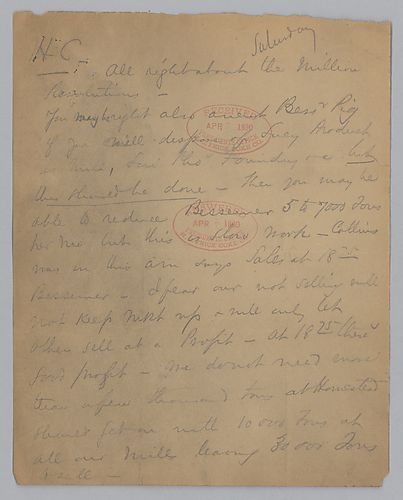 Saturday
H.C.
All right about the Million
Resolutions –
You may be right also Bess'r Pig
if you will Lucy Product
Foundry but
this should be done – Then you may be
able to reduce Bessemer 5 to 7000 Tons
per mo but this is slow work – Collins
was in this am says Sales at 18
Bessemer – I fear our not selling will
not keep up & will only let
others sell at a Profit – At 18 there's
good profit – we do not need more
than a few thousand tons at Homestead
should get on with 10 000 Tons at
all our Mills leaving 30 000 Tons
RECEIVED
APR 1890
H.C. FRICK COKE CO.
RECEIVED
APR 1890
H.C. FRICK COKE CO.